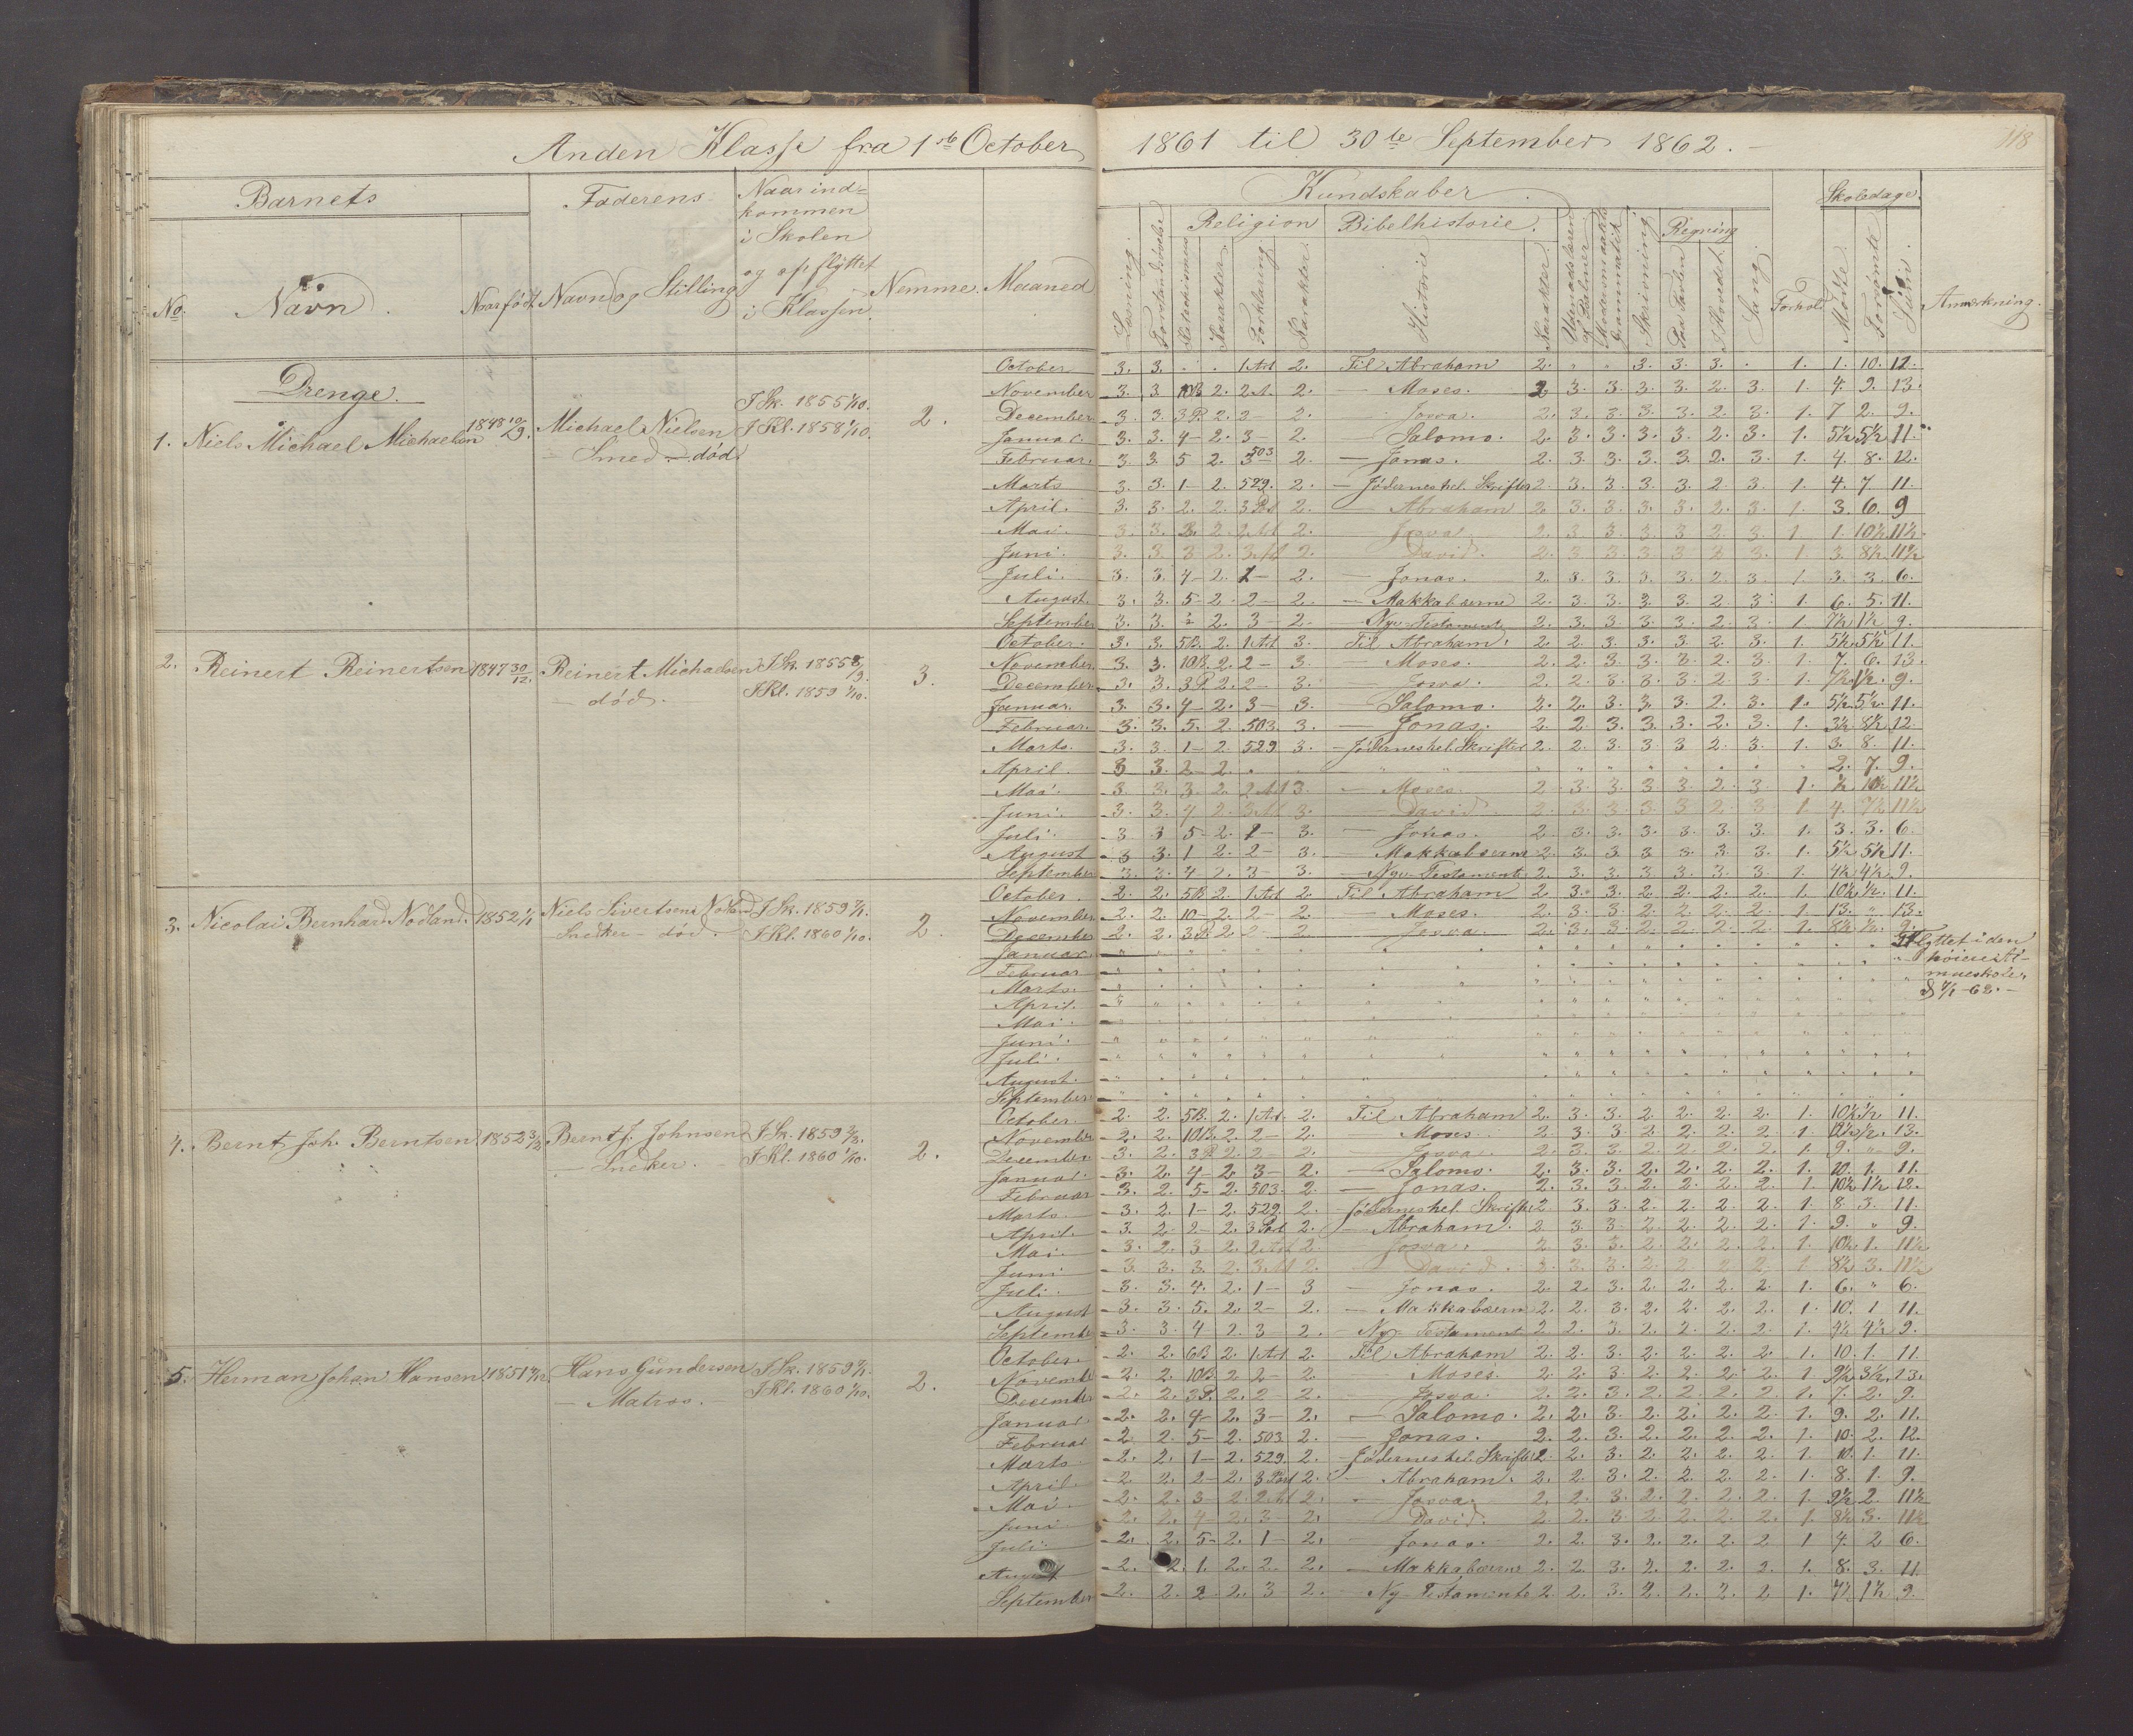 Anden Klasse fra 1ste October 1861 til 30te September 1862.
118
Barnets
Faderens
Naar ind-
kommen
i Skolen
og opflyttet
i Klassen
No.
Navn
Naar født
Navn og Stilling
Nemme
Maaned
Kundskaber
Læsning
Religion
Karakter
Forklaring
Karakter
Bibelhistorie
Historie
Karakter
Skrivning
Regning
Paa Tavlen
I Hovedet
Sang
Forhold
Skoledage
Mødte
Forsømte
Anmærkning
Drenge.
1. Niels Michael Michaelsen
Michael Nielsen
- Smed - død
I Sk. 1855 1/10.
I Kl. 1858 1/10.
2.
October 3. 3. 1 Art 2. Til Abraham 2. 3. 3. 3. 1. 1. 10. 12.
November 3. 3. 10B. 2. 2 A. 2. - Moses. 2 3. 3. 3. 3. 2. 3. 1. 4. 9. 13.
December 3. 3. 3P. 2. 2 - 2. Josva. 2. 3. 3. 3. 3. 2. 3. 1. 7 2. 9.
Januar. 3. 3. 4 - 2. 3 - 2. - Salomo. 2. 3. 3. 3. 3. 2. 3. 1. 5½ 5½ 11.
Februar. 3. 3. 5 2. 503 2. - Jonas. 2. 3. 3. 3. 3. 2. 3. 1. 4. 8. 12.
Marts 3. 3. 1 - 2. 529. 2. - Jødernes hel. Skrifter 2. 3. 3. 3. 3. 2. 3. 1. 4. 7. 11.
April. 3. 3. 2. 2. 2. - Abraham 2. 3. 3. 3. 3. 2. 3. 1. 3. 6. 9
Mai. 3. 3. 2. 2 Art 2. Josva 2. 3. 3. 3. 3. 2. 3. 1 1. 10½ 11½
Juni. 3. 3. 3 2. 3 Art 2. David. 2. 3. 3. 3. 3. 2. 3. 1. 3. 8½ 11½
Juli. 3. 3. 4 - 2. 1 - 2. - Jonas. 2. 3. 3. 3. 3. 2. 3. 1. 3. 3. 6.
August. 3. 3. 5 - 2. 2 - 2. - Makkabæerne 2. 3. 3. 3. 3. 2. 3. 1. 6. 5. 11.
September 3. 3. 2. 3 - 2. - Nye Testamente 2. 3. 3. 3. 3. 2. 3. 1. 7½ 1½ 9.
2. Reinert Reinertsen 1847 30/12.
Reinert Michaelsen
- død. -
I Sk. 1855 8/9.
I Kl. 1859 1/10.
3.
October. 3. 3. 5B. 2. 1 Art 3. Til Abraham. 2. 2. 3. 3. 3. 2. 3. 1. 5½ 5½ 11.
November. 3. 3. 10B. 2. 2 - 3. - Moses. 2. 2. 3. 3. 3. 2. 3. 1. 7. 6. 13.
December. 3. 3. 3P. 2. 2 - 3. - Josva. 2. 2. 3. 3. 3. 2. 3. 1. 7½ 1½ 9.
Januar. 3. 3. 4 - 2. 3 - 3. - Salomo. 2. 2. 3. 3. 3. 2. 3. 1. 5½ 5½ 11.
Februar. 3. 3. 5. 2. 503. 3. - Jonas. 2. 2. 3. 3. 3. 2. 3. 1. 3½ 8½ 12.
Marts. 3. 3. 1 - 2. 529 3. - Jødernes hel. Skrifter 2. 2. 3. 3. 3 2. 3. 1. 3. 8. 11.
April. 3 3. 2 - 2. 2. 7. 9.
Mai. 3. 3. 3. 2. 2 Art 3. - Moses. 2. 3. 3. 3. 3. 2. 3. 1. ½ 10½ 11½
Juni. 3. 3. 4 2. 3 Art 3. David 2. 3. 3. 3. 3 2. 3. 1. 4. 7½ 11½
Juli. 3 3 5 - 2. 1 - 3. - Jonas. 2. 3. 3. 3. 3. 3. 3. 1. 3. 3. 6.
August 3 3. 1 2. 2 - 3. - Makkabæerne 2. 3. 3. 3 3. 3. 3. 1. 5½ 5½ 11.
September 3. 3. 4 2. 3 - 3. - Nye Testamente 2. 3. 3. 3. 3. 3. 3. 1. 4½ 4½ 9.
3. Nicolai Bernhard Nodland. 1852 1/1
Niels Sivertsen Nodland
Snedker - død.
I Sk. 1859
I Kl. 1860 1/10.
2.
October. 2. 2. 5B 2. 1 Art 2. Til Abraham 2. 3. 3. 2. 2. 2. 2. 1. 10½ ½ 11.
November 2. 2. 10 - 2. 2 - 2. - Moses. 2. 3. 3. 2. 2. 2. 2. 1. 13. " 13.
December 2. 2. 3P. 2 2 - 2. - Josva. 2. 3. 3. 2. 2. 2. 2. 1. 8½ ½ 9.
Januar.
Februar
Marts.
April.
Mai.
Juni.
Juli.
August.
September
Flyttet i den
høiere Al-
mueskole,
62. -
4. Bernt Joh. Berntsen 1852
Bernt J. Johnsen
- Snedker.
I Sk. 1859
I Kl. 1860 1/10.
2.
October 2. 2. 5B. 2. 1 Art. 2. Til Abraham 2. 3. 3. 2. 2. 2. 2. 1. 10½ ½ 11.
November 2. 2. 10B. 2. 2 - 2. Moses 2. 3. 3. 2. 2. 2. 2. 1. 12½ ½. 13.
December 3. 2. 3P 2. 2 - 2. - Josva. 2. 3. 3. 2. 2. 2. 2. 1. 9. " 9.
Januar. 3. 2. 4 - 2. 3 - 2. - Salomo. 2. 3. 3. 2. 2. 2. 2. 1. 10. 1. 11.
Februar 3. 2. 5 - 2. 503. 2. - Jonas. 2. 3. 3. 2. 2. 2. 2. 1. 10½ 1½ 12.
Marts. 3. 2. 1 - 2. 529 2. - Jødernes hel. Skrifter 2 3. 3. 2. 2. 2. 2. 1. 8. 3. 11.
April. 3. 2 2 - 2. 2. - Abraham. 2 3. 3. 2. 2. 2. 2. 1. 9. " 9.
Mai. 3. 2. 3 2. 2 Art 2. - Josva. 2. 3. 3. 2. 2. 2. 2. 1. 10½ 1. 11½
Juni 3. 3. 3. 2. 3 Art 2. David. 2. 3. 3. 2. 2 2. 2. 1 8½ 3. 11½
Juli. 3. 3. 4. 2. 1 - 3 - Jonas. 2. 2. 3. 2. 2. 2. 2. 1. 6. " 6.
August 3. 3. 5. 2. 2 - 2. - Makkabæerne 2. 2. 3. 2. 2. 2. 2. 1. 10. 1 11.
September 3. 3. 4 2. 3 - 2. - Nye Testament 2. 2. 3. 2. 2. 2. 2. 1. 4½ 4½ 9.
5. Herman Johan Hansen 1851
Hans Gundersen
- Matros. -
I Sk. 1859
I Kl. 1860 1/10.
2.
October. 2. 2. 6B 2. 1 Art 2. Til Abraham 2. 2. 3. 2. 2. 2. 2. 1. 10. 1. 11.
November 2. 2. 10B. 2 2 - 2. - Moses. 2. 2. 3. 2. 2. 2. 2. 1 9½ 3½ 13.
December 2. 2. 3P. 2. 2 - 2. - Josva. 2. 2. 3. 2. 2. 2. 2. 1. 7. 2. 9.
Januar. 2. 2. 4 - 2. 3 - 2. - Salomo. 2. 2. 3. 2. 2. 2. 2. 1. 9. 2. 11.
Februar 2. 2. 5 - 2. 503 2. - Jonas. 2. 2. 3. 2. 2. 2. 2. 1. 10. 2. 12.
Marts. 2. 2. 1 - 2. 529. 2. - Jødernes hel. Skrifter 2. 2. 3. 2. 2. 2. 2. 1. 10. 1. 11.
April. 2. 2. 2 - 2. 2. - Abraham. 2. 2. 3. 2. 2. 2. 2. 1. 8. 1. 9.
Mai. 2. 2. 3 - 2. 2 Art 2. - Josva. 2. 2. 3. 2. 2. 2. 2. 1. 9½ 2 11½
Juni 2. 2. 4 - 2. 3 - 2. - David. 2. 2. 3. 2. 2. 2. 2. 1. 8½ 3. 11½
Juli. 2. 2. 5 - 2. 1 - 2. - Jonas. 2. 2. 3. 2. 2. 2. 2 1 4. 2 6.
August 2. 2. 1. 2. 2. 2. - Makkabæerne 2. 2. 3. 2. 2. 2. 2. 1. 8. 3. 11.
September 2. 2. 2 - 2. 3 - 2. - Ny Testamente 2. 2. 3. 2. 2. 2. 2. 1. 7½ 1½ 9.